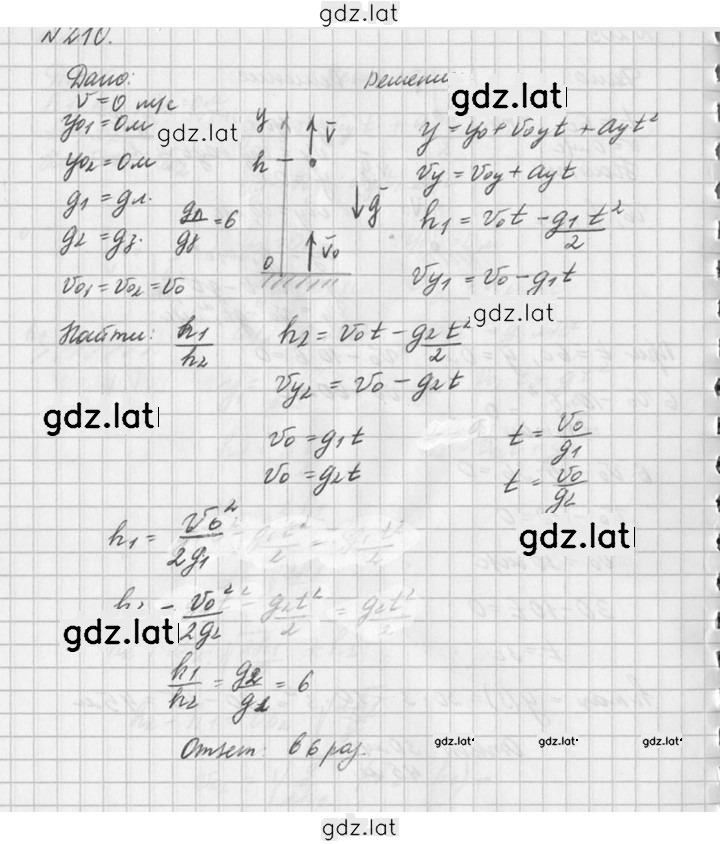 gdz.lat
N 210.
Дано: Решени
v = 0 м/с
y01 = 0 м
y02 = 0 м
g1 = gл.
g2 = gз.
gл/gз = 6
v01 = v02 = v0
Найти: h1/h2
gdz.lat
y
h
0
v
g
v0
gdz.lat
y = y0 + v0yt + ayt²
vy = v0y + ayt
h1 = v0t - g1t²/2
vy1 = v0 - g1t
gdz.lat
h2 = v0t - g2t²/2
vy2 = v0 - g2t
gdz.lat
v0 = g1t t = v0/g1
v0 = g2t t = v0/g2
h1 = v0²/2g1
gdz.lat
h2 = v0²/2g2
gdz.lat
h1/h2 = g2/g1 = 6
Ответ: в 6 раз.
gdz.lat gdz.lat gdz.lat
gdz.lat